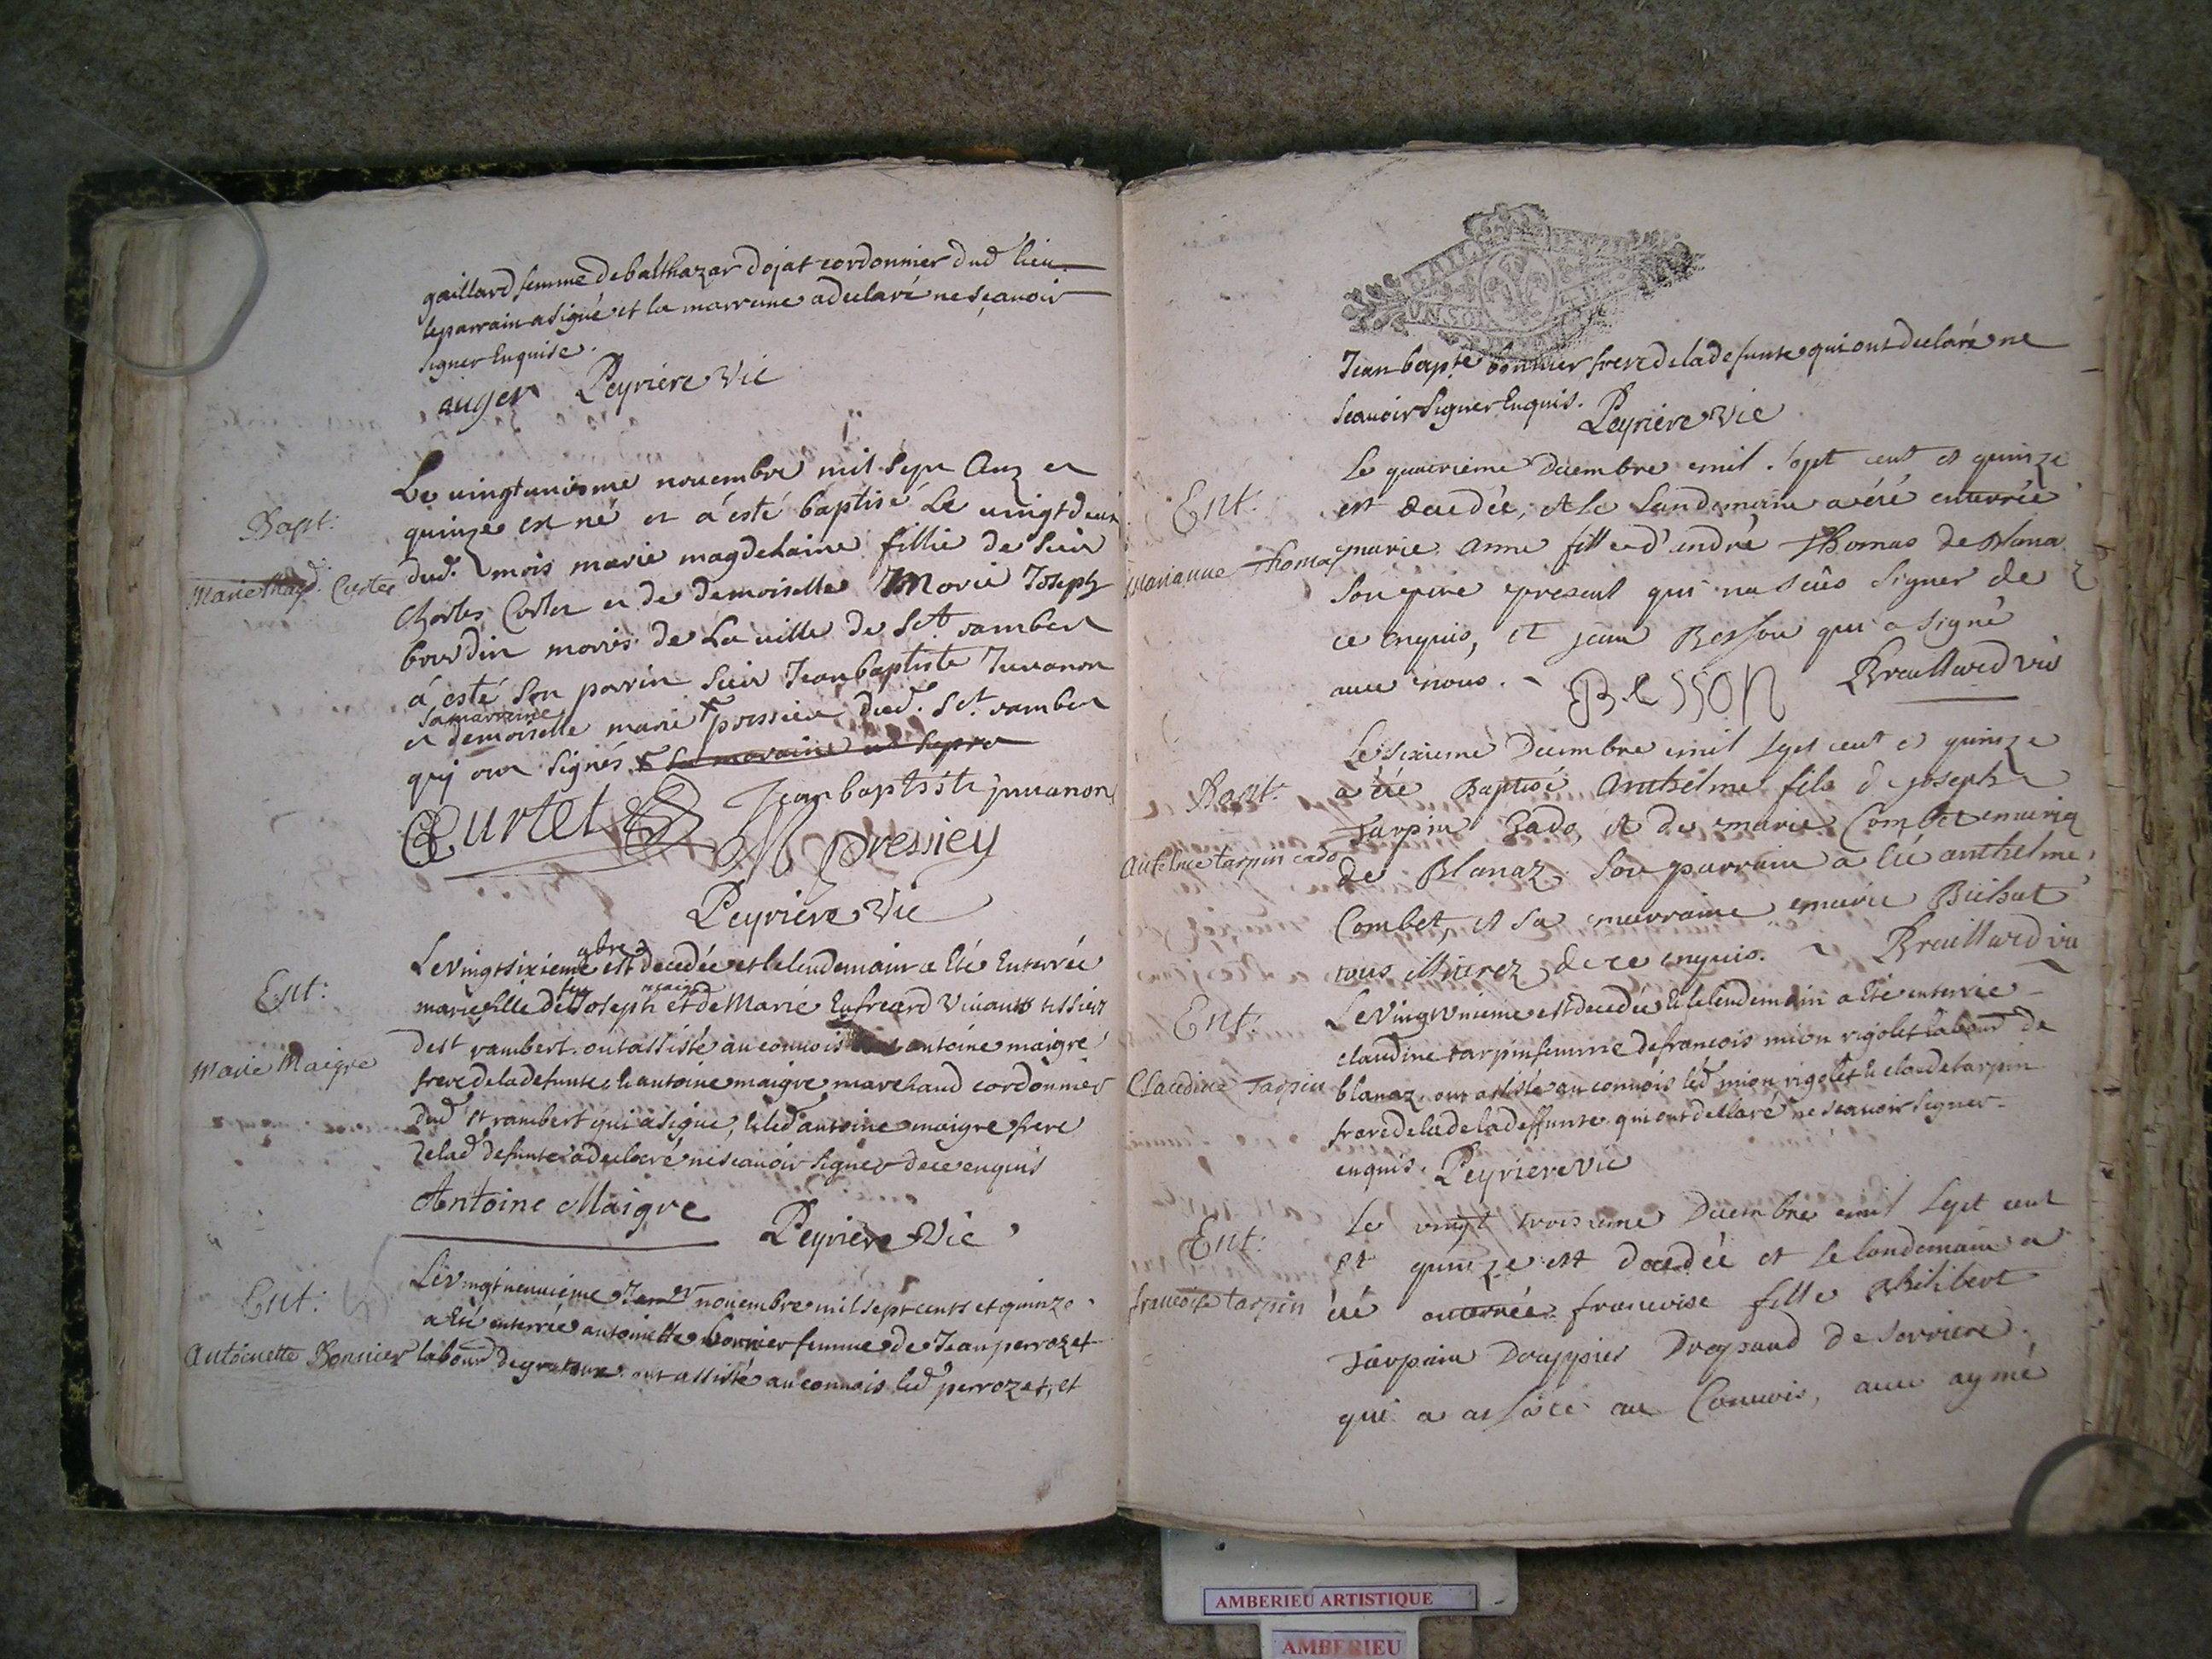 gaillard femme de balthazar dojat cordonnier dud lieu
le parrain a signé et la marreine a declaré ne sçavoir
signer Enquise.
auger Peyriere Vic
Bapt:
Marie Magd. Curtet
Le uingtunisme nouembre mil sept Cenz et
quinze est né et a esté baptisé Le uingtdeux
dud. mois marie magdelaine fillie de Sieur
Charles Curtet et de demoiselle Marie Joseph
bourdin maris de La uille de St rambert
á esté Son parin Sieur Jean baptiste Juuanon
sa marreine
et demoiselle marie pressieu dud. St. rambert
quj ont signés
Curtet Jean baptiste juuanon
M pressiey
Peyriere Vic
Ent:
Marie Maigre
9bre
Le Vingtsixieme est decedée et le lendemain a Eté Enterrée
feu
marie fille de Joseph et de Marie Enfreard Viuant tissier
de st rambert. ont assisté au conuois antoine maigre
frere de la defunte, et antoine maigre marchand cordonnier
dud st rambert qui a signé, et led antoine maigre frere
de lad defunte a declaré ne scauoir signer de ce enquis
Antoine Maigre Peyriere Vic
Ent:
Antoinette Bonnier
Le Vingtneuuieme nouembre mil sept cents et quinze
a Eté enterrée antoinette bonnier femme de Jean perrozet
labour de ont assisté au conuois led perrozet, et
Jean bapte bonnier frere de la defunte qui ont declaré ne
scauoir signer Enquis. Peyriere Vic
Ent:
Marianne Thomas
Le quatrieme Decembre mil sept cent et quinze
est decedée, et le Landemain a été enterrée
marie anne fille d'andré Thomas de Blana
son pere present qui na sceu signer de
ce enquis, et jean Besson qui a signé
auec nous. Besson Breullard vic
Bapt:
Antelme tarpin cado
Le sixieme Decembre mil sept cent et quinze
a été Baptisé Anthelme fils de joseph
Tarpin Cado, et de marie Combet mariez
de Blanaz son parrain a été anthelme
Combet, et sa marraine marie Bichat
tous illiterez de ce enquis. Breullard vic
Ent:
Claudine Tarpin
Le Vingtunieme est decedée et le lendemain a Eté enterrée
claudine tarpin femme de francois mion rigolet labour de
blanaz. ont assisté au conuois led mion rigolet et claude tarpin
frere de la de la deffunte qui ont declaré ne scauoir signer
enquis. Peyriere Vic
Ent:
francoise tarpin
Le vingt troisieme Decembre mil sept cent
et quinze est decedée et le landemain a
été enterrée francoise fille Philibert
Tarpin Drappier de Serriere
qui a assisté au Conuois, auec aymé
AMBERIEU ARTISTIQUE
AMBERIEU